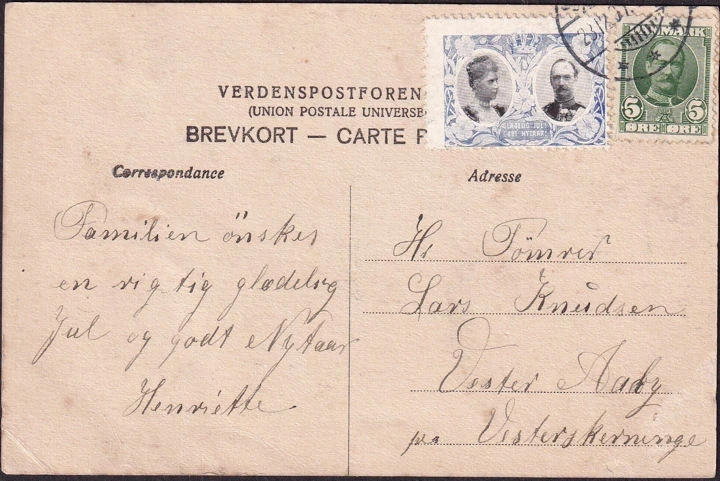 VERDENSPOSTFOREN
(UNION POSTALE UNIVERSE
BREVKORT — CARTE P
GLÆDELIG JUL!
GOT NYTAAR!
MARK
5 5
ØRE ØRE
23.12.
Correspondance
Adresse
Familien önskes
en rigtig glædelig
Jul og godt Nytaar
Henriette
Hr Tömrer
Lars Knudsen
Vester Aaby
pr Vesterskerninge